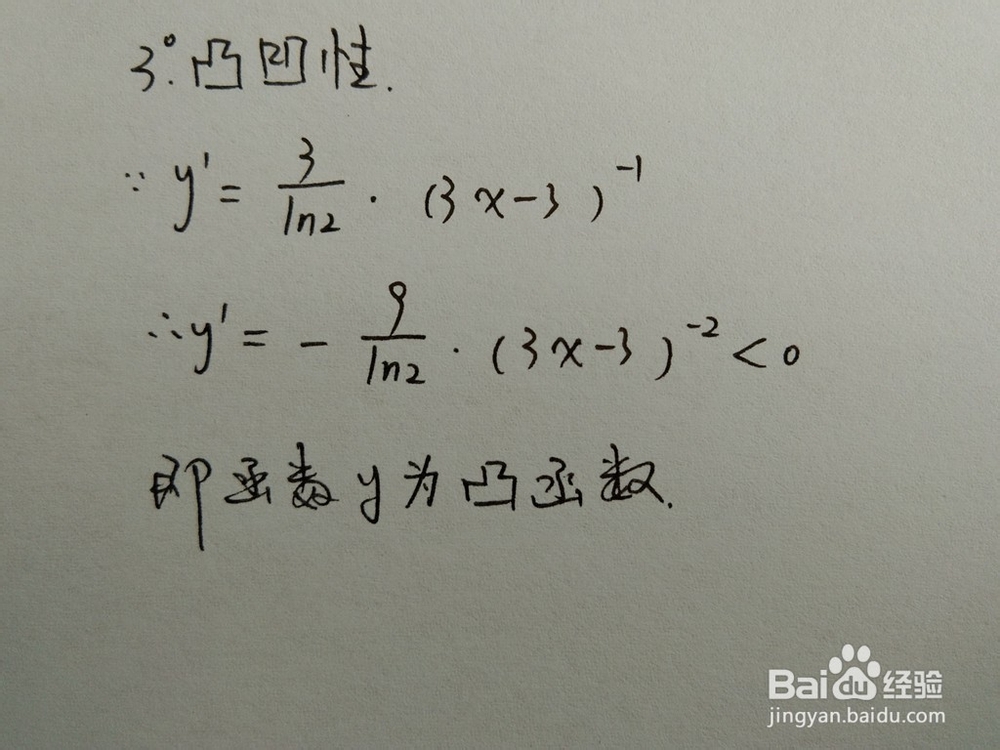 3°.凸凹性.
∵ y' = 3/ln2 · (3x-3)^-1
∴ y' = - 9/ln2 · (3x-3)^-2 < 0
即函数y为凸函数.
Baidu经验
jingyan.baidu.com